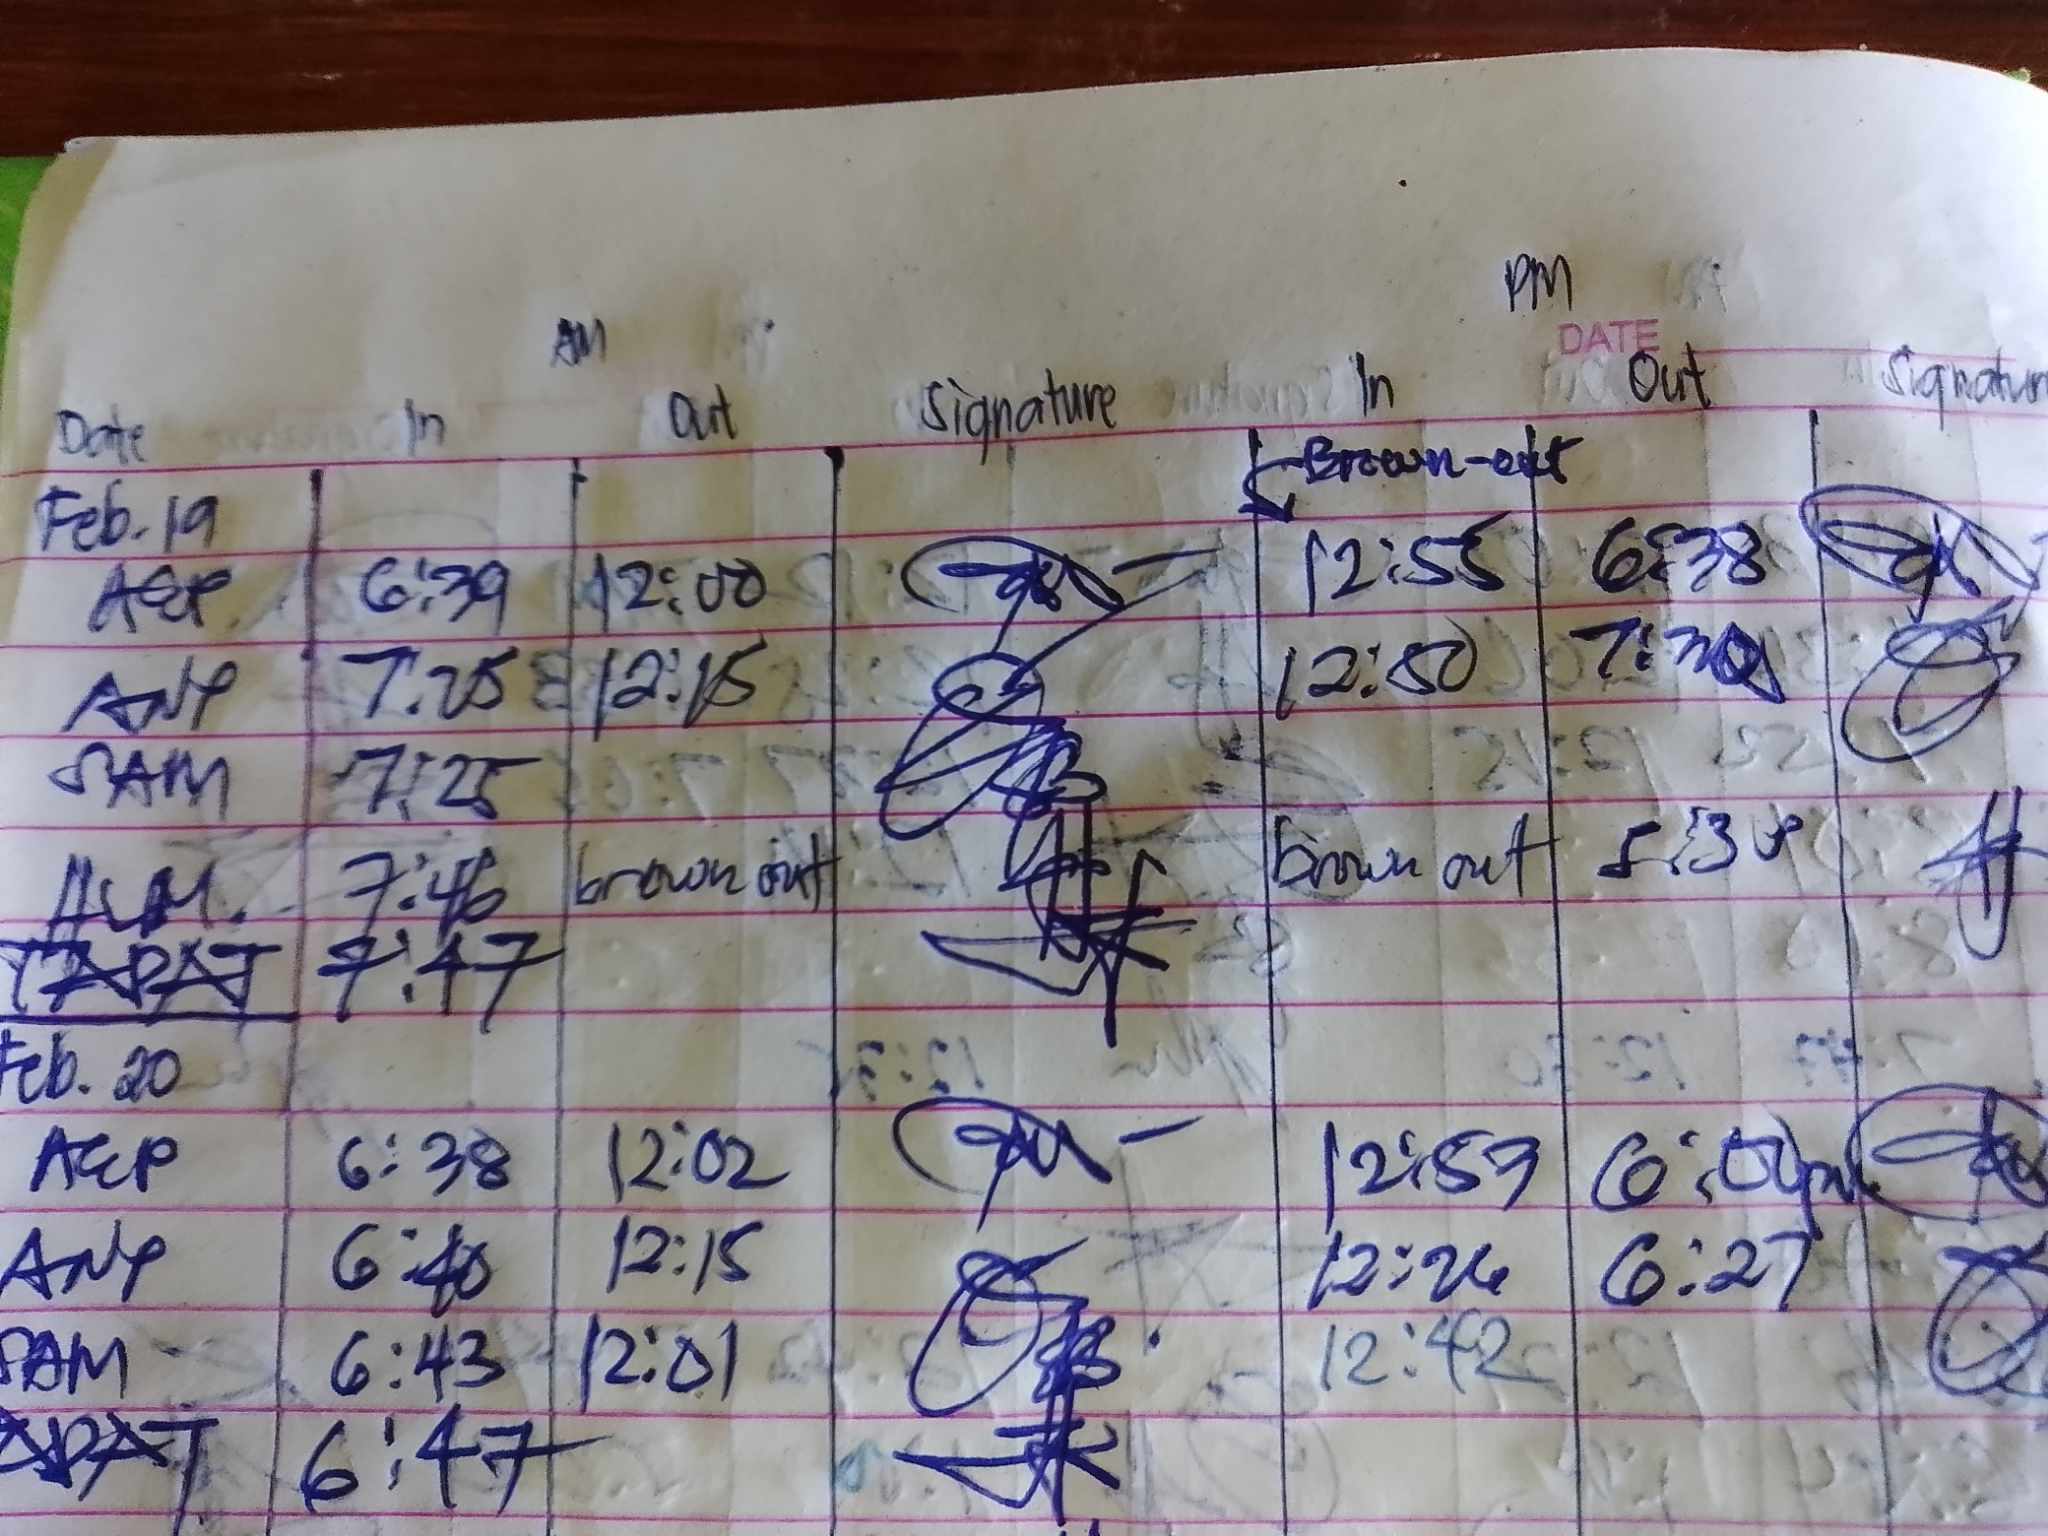 AM PM
DATE
Date In Out Signature In Out Signature
Brown-out
Feb. 19
AEP 6:39 12:00 12:55 6:38
ANP 7:25 12:15 12:50 7:30
SAM 7:25
7:46 brown out brown out 5:30
TAPAT 7:47
Feb. 20
AEP 6:38 12:02 12:59 6:00pm
ANP 6:40 12:15 12:26 6:27
SAM 6:43 12:01 12:42
TAPAT 6:47